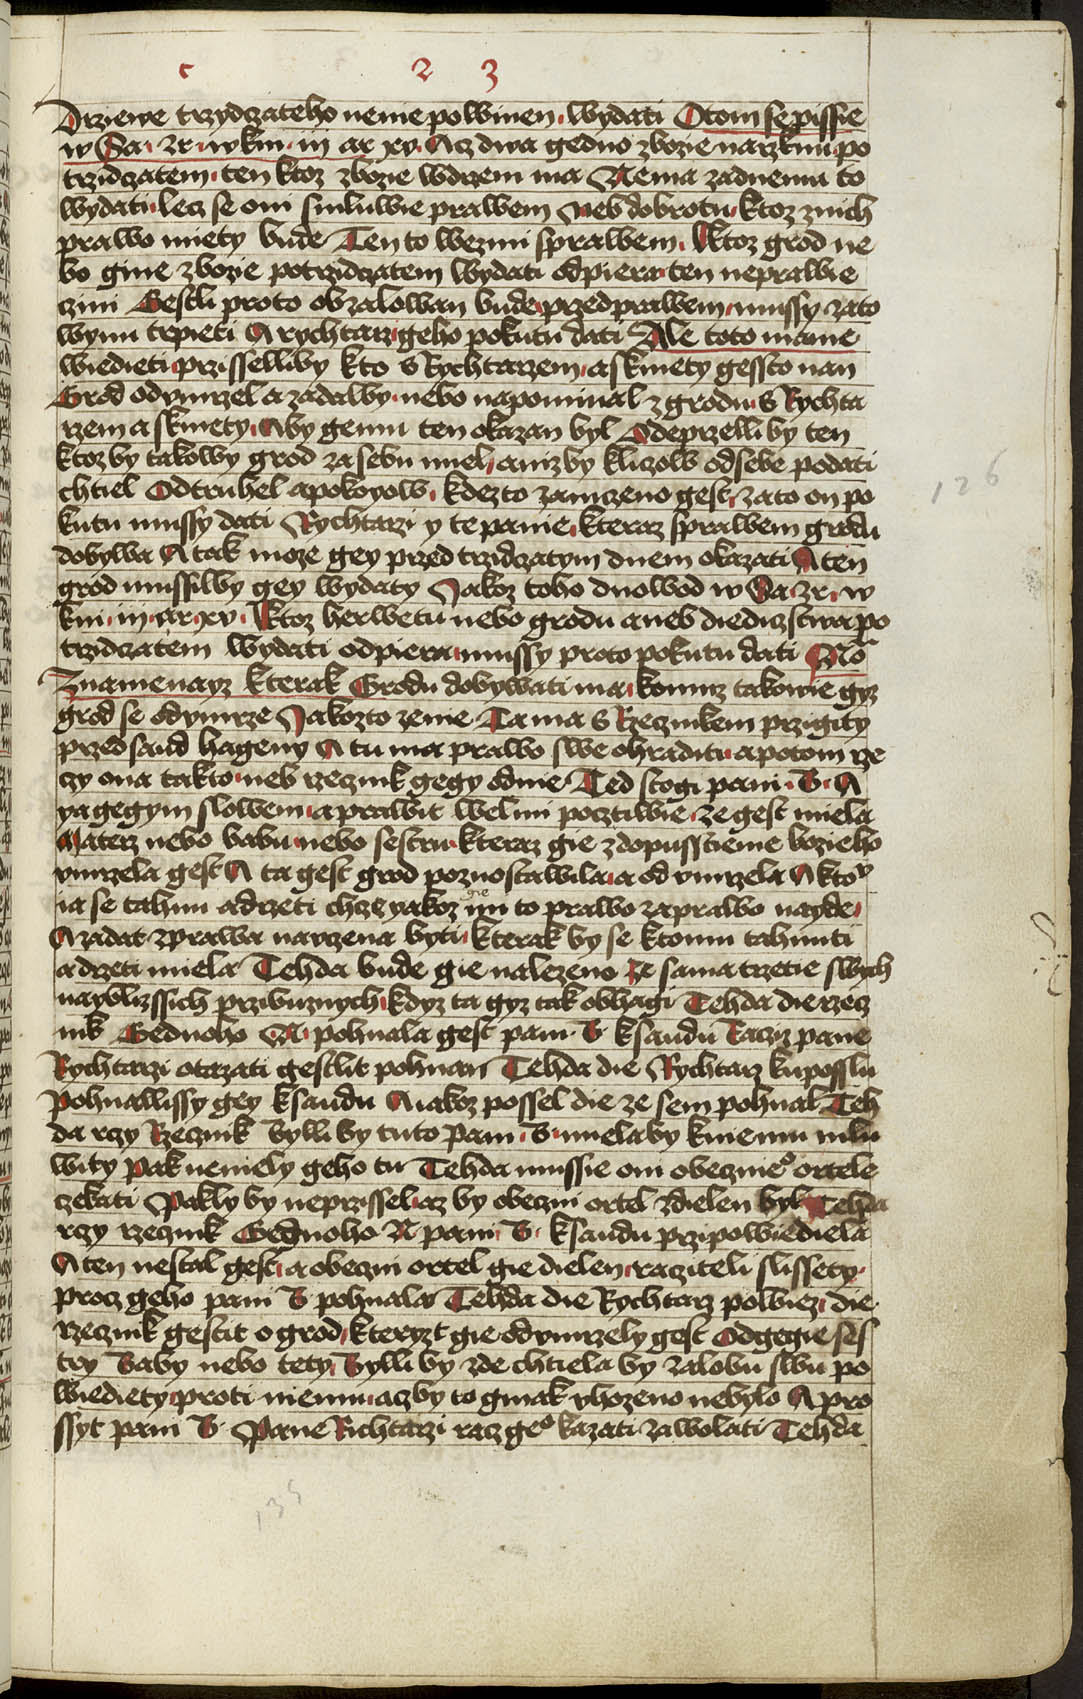 c 2 3
Drziewe trzydczateho nenie powinen wydati Otom se pissie
w Sa zr w kni iii ar xv Acz dwa gedno zbozie narzknu po
trzidczatem ten ktoz zbozie wdrzem ma Nema zadnemu to
wydati lecz se oni smluwie prawem neb dobrotu ktoz znich
prawo miety bude Ten to wezmi sprawem Ktoz grod ne
bo gine zbozie potrzidczatem wydati odpiera ten neprawie
czini Gestli proto obzalowan bude przed prawem mussy zato
wynu trpieti A rychtarz geho pokutu dati Ale toto mame
wiedieti przisselliby kto s Rychtarzem a skmety gessto nan
Grod odumrzel a zadalby nebo napominal z grodu s Rychta
rzem a skmety Aby gemu ten okazan byl Odeprzelli by ten
ktoz by takowy grod za sebu miel a niz by kliczow od sebe podati
chtiel Od truhel a pokoyow kdez to zamczeno gest zato on po
kutu mussy dati Rychtarzi y te panie kteraz sprawem grodu
dobywa A tak moze gey przed trzidczatym dnem okazati A ten
grod mussilby gey wydaty Jakoz toho duowod w Sa zr w
kni iii ar xv Ktoz herwetu nebo grodu a neb diediczstwa po
trzidczatem wydati odpiera mussy proto pokutu dati No
Znamenayz kterak Grodu dobywati ma komuz takowie gyz
grod se odumrze Jakozto zenie Ta ma s Rzecznikem przigity
przed saud hageny A tu ma prawo swe ohraditi a potom rze
czy ona takto neb rzecznik gegy odnie Ted stogi pani B A
ya gegym slowem a prawit welmi pocztiwie ze gest miela
Materz nebo babu nebo sestru kteraz gie z dopusstienie bozieho
umrzela gest A ta gest grod pozuostawila a od umrzela A kto
na se tahnu a drzeti chze yakoz gie mi to prawo za prawo nayde
A zadat z prawa nauczena byti kterak by se ktomu tahnuti
a drzeti miela Tehda bude gie nalezeno ze sama trzetie swych
nayblizssich przibuznych kdyz ta gyz tak obhagi Tehda die rzecz
nik Gednoho N pohnala gest pani B ksaudu Racz pane
Rychtarzi otazati gestlit pohnan Tehda die Rychtarz ku posslu
Pohnallissy gey ksaudu A iakoz possel die ze sem pohnal Teh
da rczy Rzecznik Bylli by tuto Pani B miela by k niemu mlu
wity Pak neniely geho tu Tehda mussie oni obecznie ortele
czekati Pakly by neprzissel acz by obeczni ortel zdielen byl Tehda
rczy rzecznik Gednoho N pani B ksaudu przipowiediela
A ten nestal gest a obeczni ortel gie dielen racziteli slissety
procz geho pani B pohnala Tehda die Rychtarz powiez die
rzecznik gestit o grod kteryzt gie odumrzely gest Od gegie ses
try Baby nebo tety Bylli by zde chtiela by zalobu swu po
wiediety proti niemu acz by to ginak uhozeno nebylo A pro
ssyt pani B Pane Richtarzi racz geo kazati zawolati Tehda
126
135